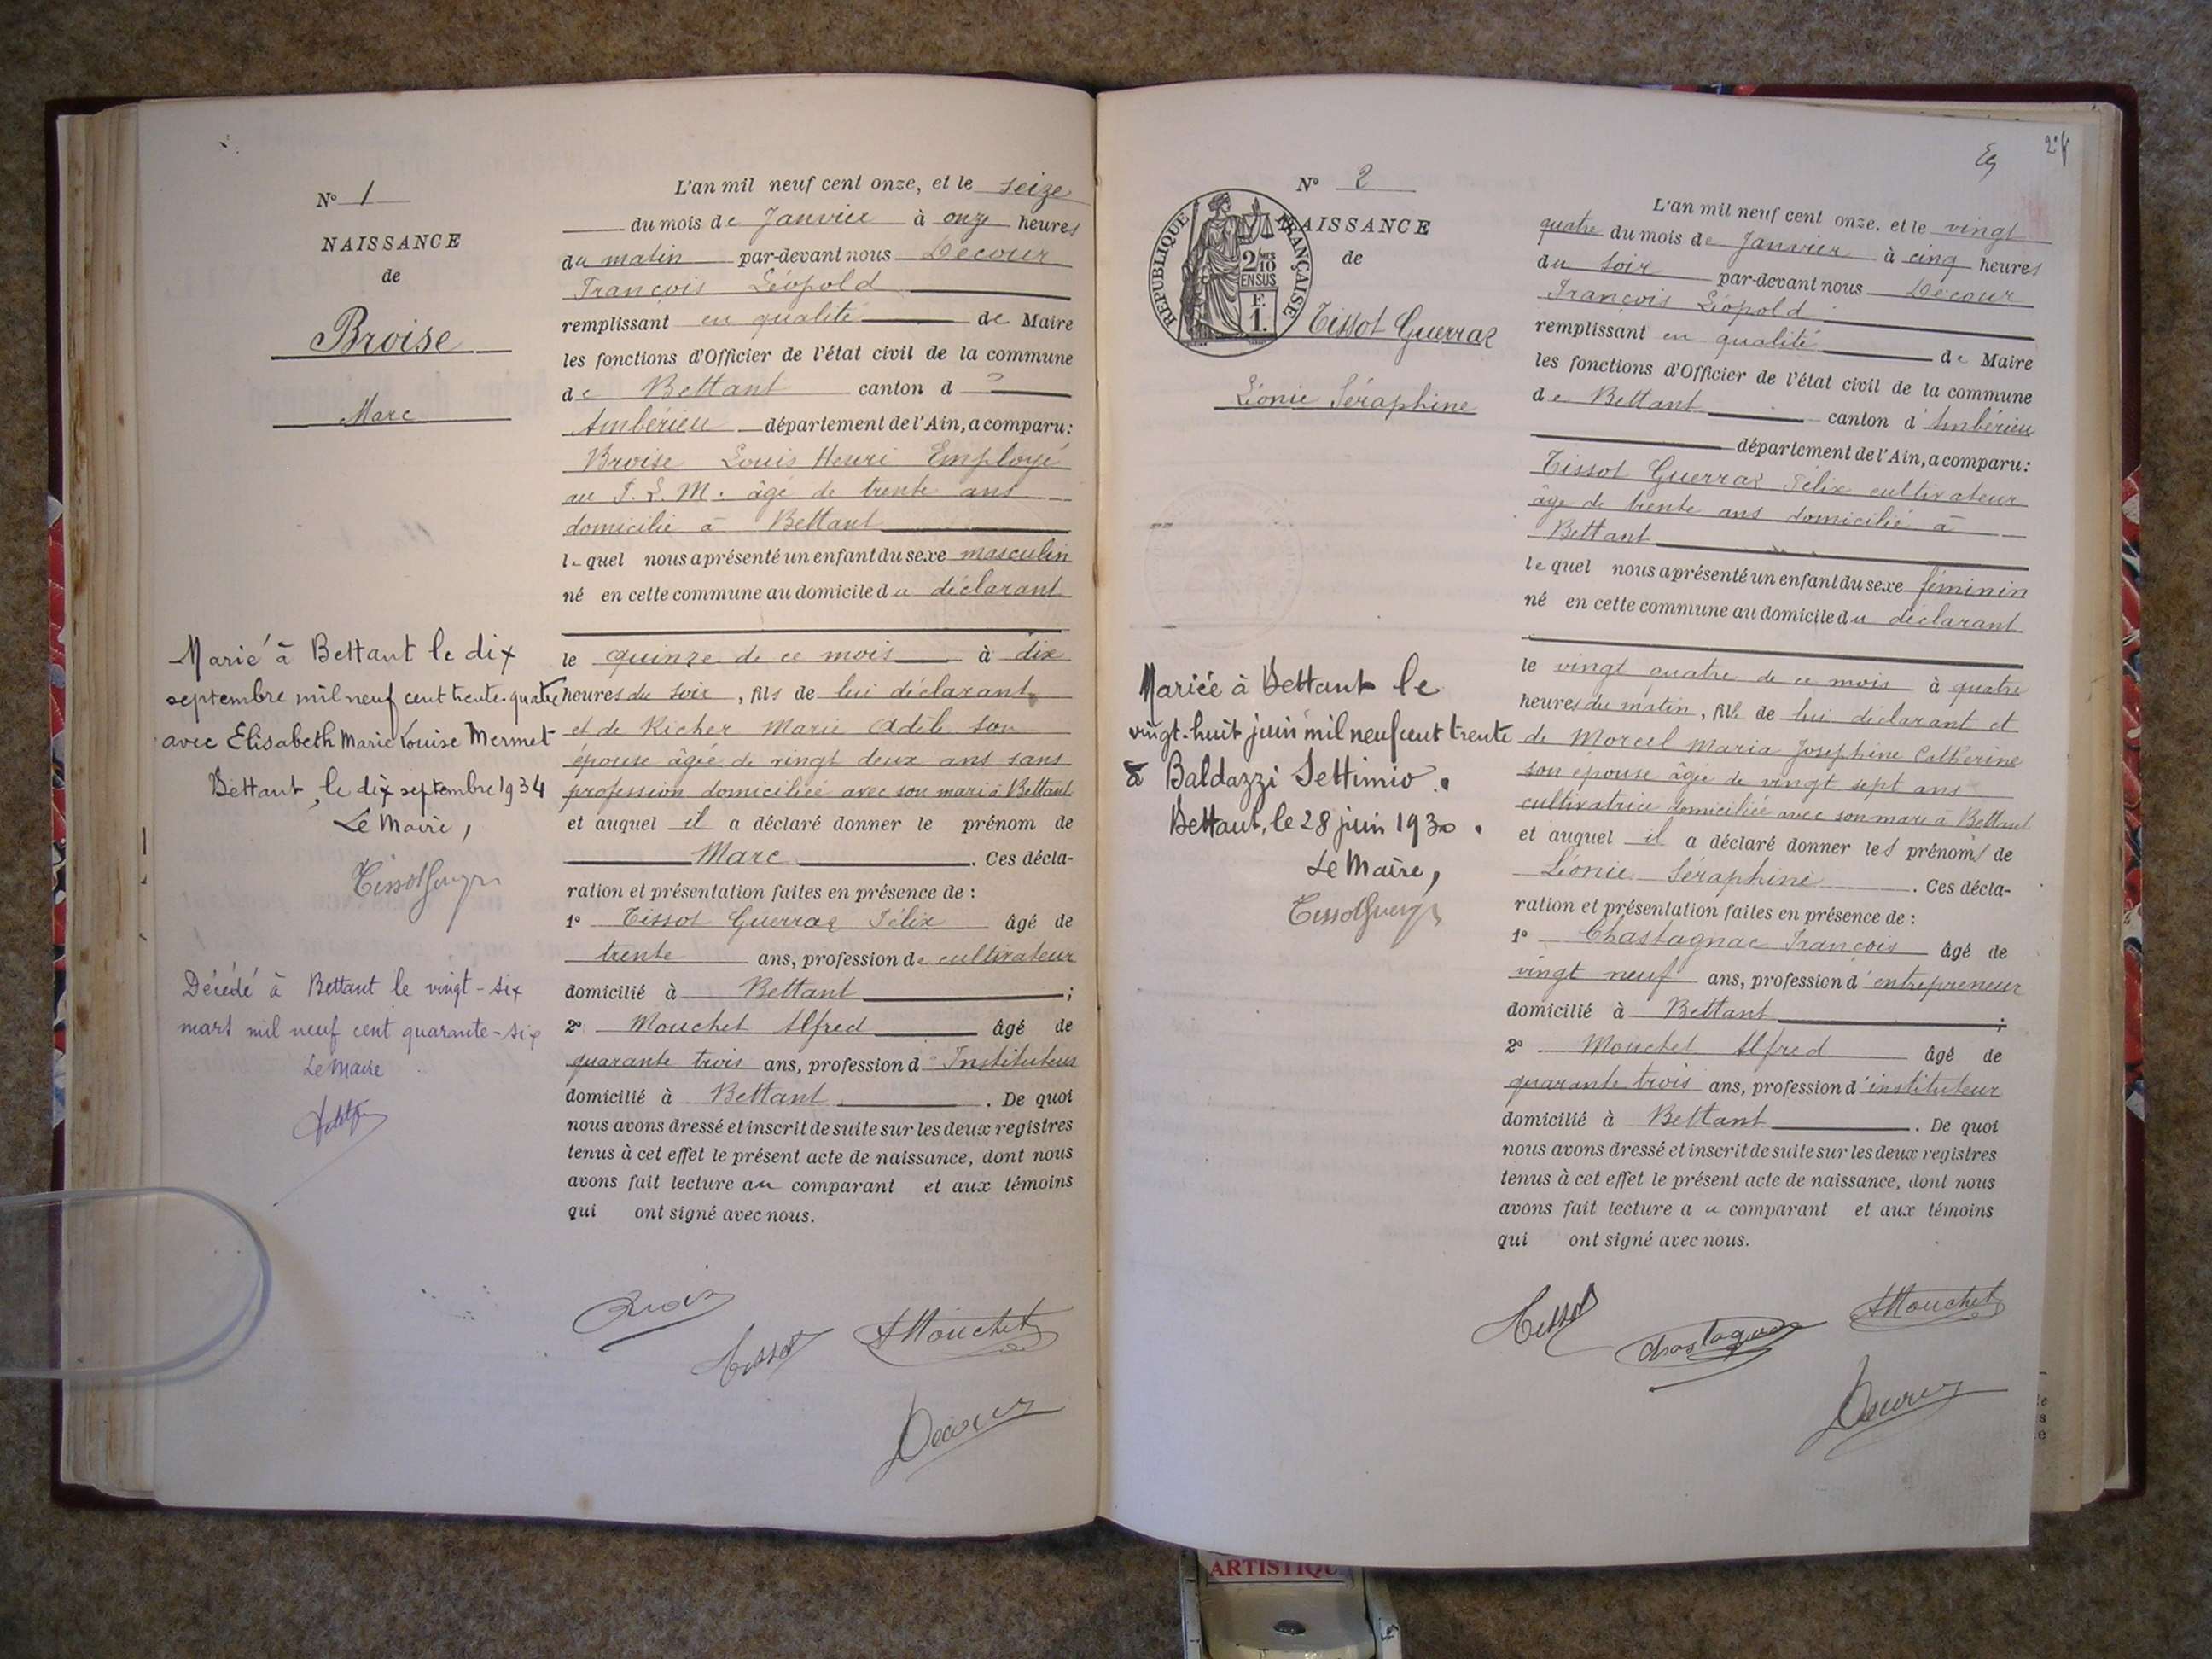 N° 1
NAISSANCE
de
Broise
Marc
Marié à Bettant le dix
septembre mil neuf cent trente-quatre
avec Elisabeth Marie Louise Mermet
Bettant, le dix septembre 1934
Le Maire,
Décédé à Bettant le vingt-six
mars mil neuf cent quarante-six
Le Maire
L'an mil neuf cent onze, et le seize
du mois de Janvier à onze heures
du matin par-devant nous Decour
François Léopold
remplissant en qualité de Maire
les fonctions d'Officier de l'état civil de la commune
de Bettant canton d
Ambérieu département de l'Ain, a comparu:
Broise Louis Henri Employé
au P. L. M. âgé de trente ans
domicilié à Bettant
lequel nous a présenté un enfant du sexe masculin
né en cette commune au domicile du déclarant
le quinze de ce mois à dix
heures du soir, fils de lui déclarant
et de Richer Marie Adèle son
épouse âgée de vingt deux ans sans
profession domiciliée avec son mari à Bettant
et auquel il a déclaré donner le prénom de
Marc. Ces décla-
ration et présentation faites en présence de :
1° Tissot Guerraz Félix âgé de
trente ans, profession de cultivateur
domicilié à Bettant ;
2° Mouchet Alfred âgé de
quarante trois ans, profession d'Instituteur
domicilié à Bettant. De quoi
nous avons dressé et inscrit de suite sur les deux registres
tenus à cet effet le présent acte de naissance, dont nous
avons fait lecture au comparant et aux témoins
qui ont signé avec nous.
Tissot
AMouchet
Decour
N° 2
NAISSANCE
de
REPUBLIQUE FRANÇAISE
2/10
EN SUS
F.
1.
Tissot Guerraz
Léonie Séraphine
Mariée à Bettant le
vingt-huit juin mil neuf cent trente
à Baldazzi Settimio.
Bettant, le 28 juin 1930.
Le Maire,
L'an mil neuf cent onze, et le vingt
quatre du mois de Janvier à cinq heures
du soir par-devant nous Decour
François Léopold
remplissant en qualité de Maire
les fonctions d'Officier de l'état civil de la commune
de Bettant canton d'Ambérieu
département de l'Ain, a comparu:
Tissot Guerraz Félix cultivateur
âgé de trente ans domicilié à
Bettant
lequel nous a présenté un enfant du sexe féminin
né en cette commune au domicile du déclarant
le vingt quatre de ce mois à quatre
heures du matin, fille de lui déclarant et
de Morcel Maria Joséphine Catherine
son épouse âgée de vingt sept ans
cultivatrice domiciliée avec son mari à Bettant
et auquel il a déclaré donner les prénoms de
Léonie Séraphine. Ces décla-
ration et présentation faites en présence de :
1° Chastagnac François âgé de
vingt neuf ans, profession d'entrepreneur
domicilié à Bettant ;
2° Mouchet Alfred âgé de
quarante trois ans, profession d'instituteur
domicilié à Bettant. De quoi
nous avons dressé et inscrit de suite sur les deux registres
tenus à cet effet le présent acte de naissance, dont nous
avons fait lecture au comparant et aux témoins
qui ont signé avec nous.
Tissot
Chastagnac
AMouchet
Decour
ARTISTIQU